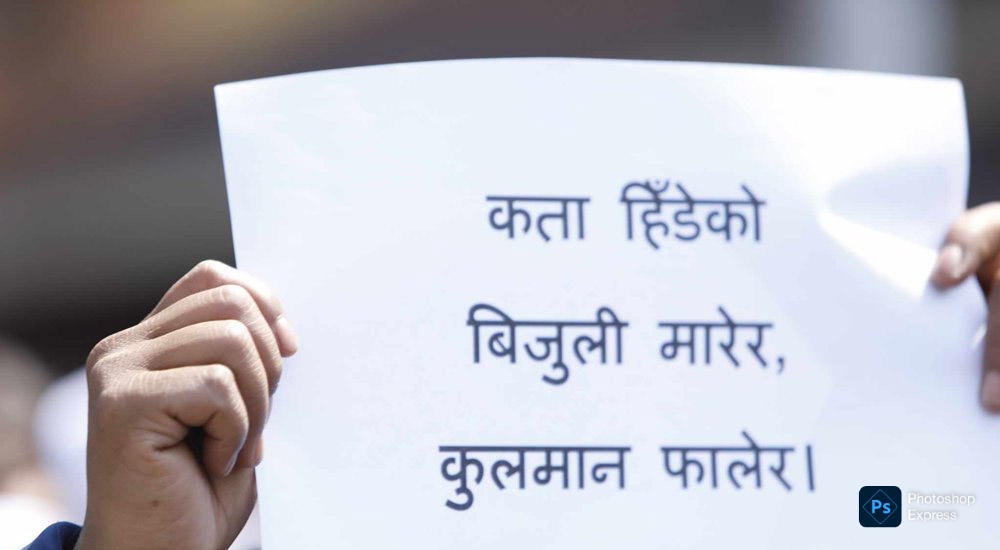 कता हिँडेको
बिजुली मारेर,
कुलमान फालेर।
Ps
Photoshop
Express